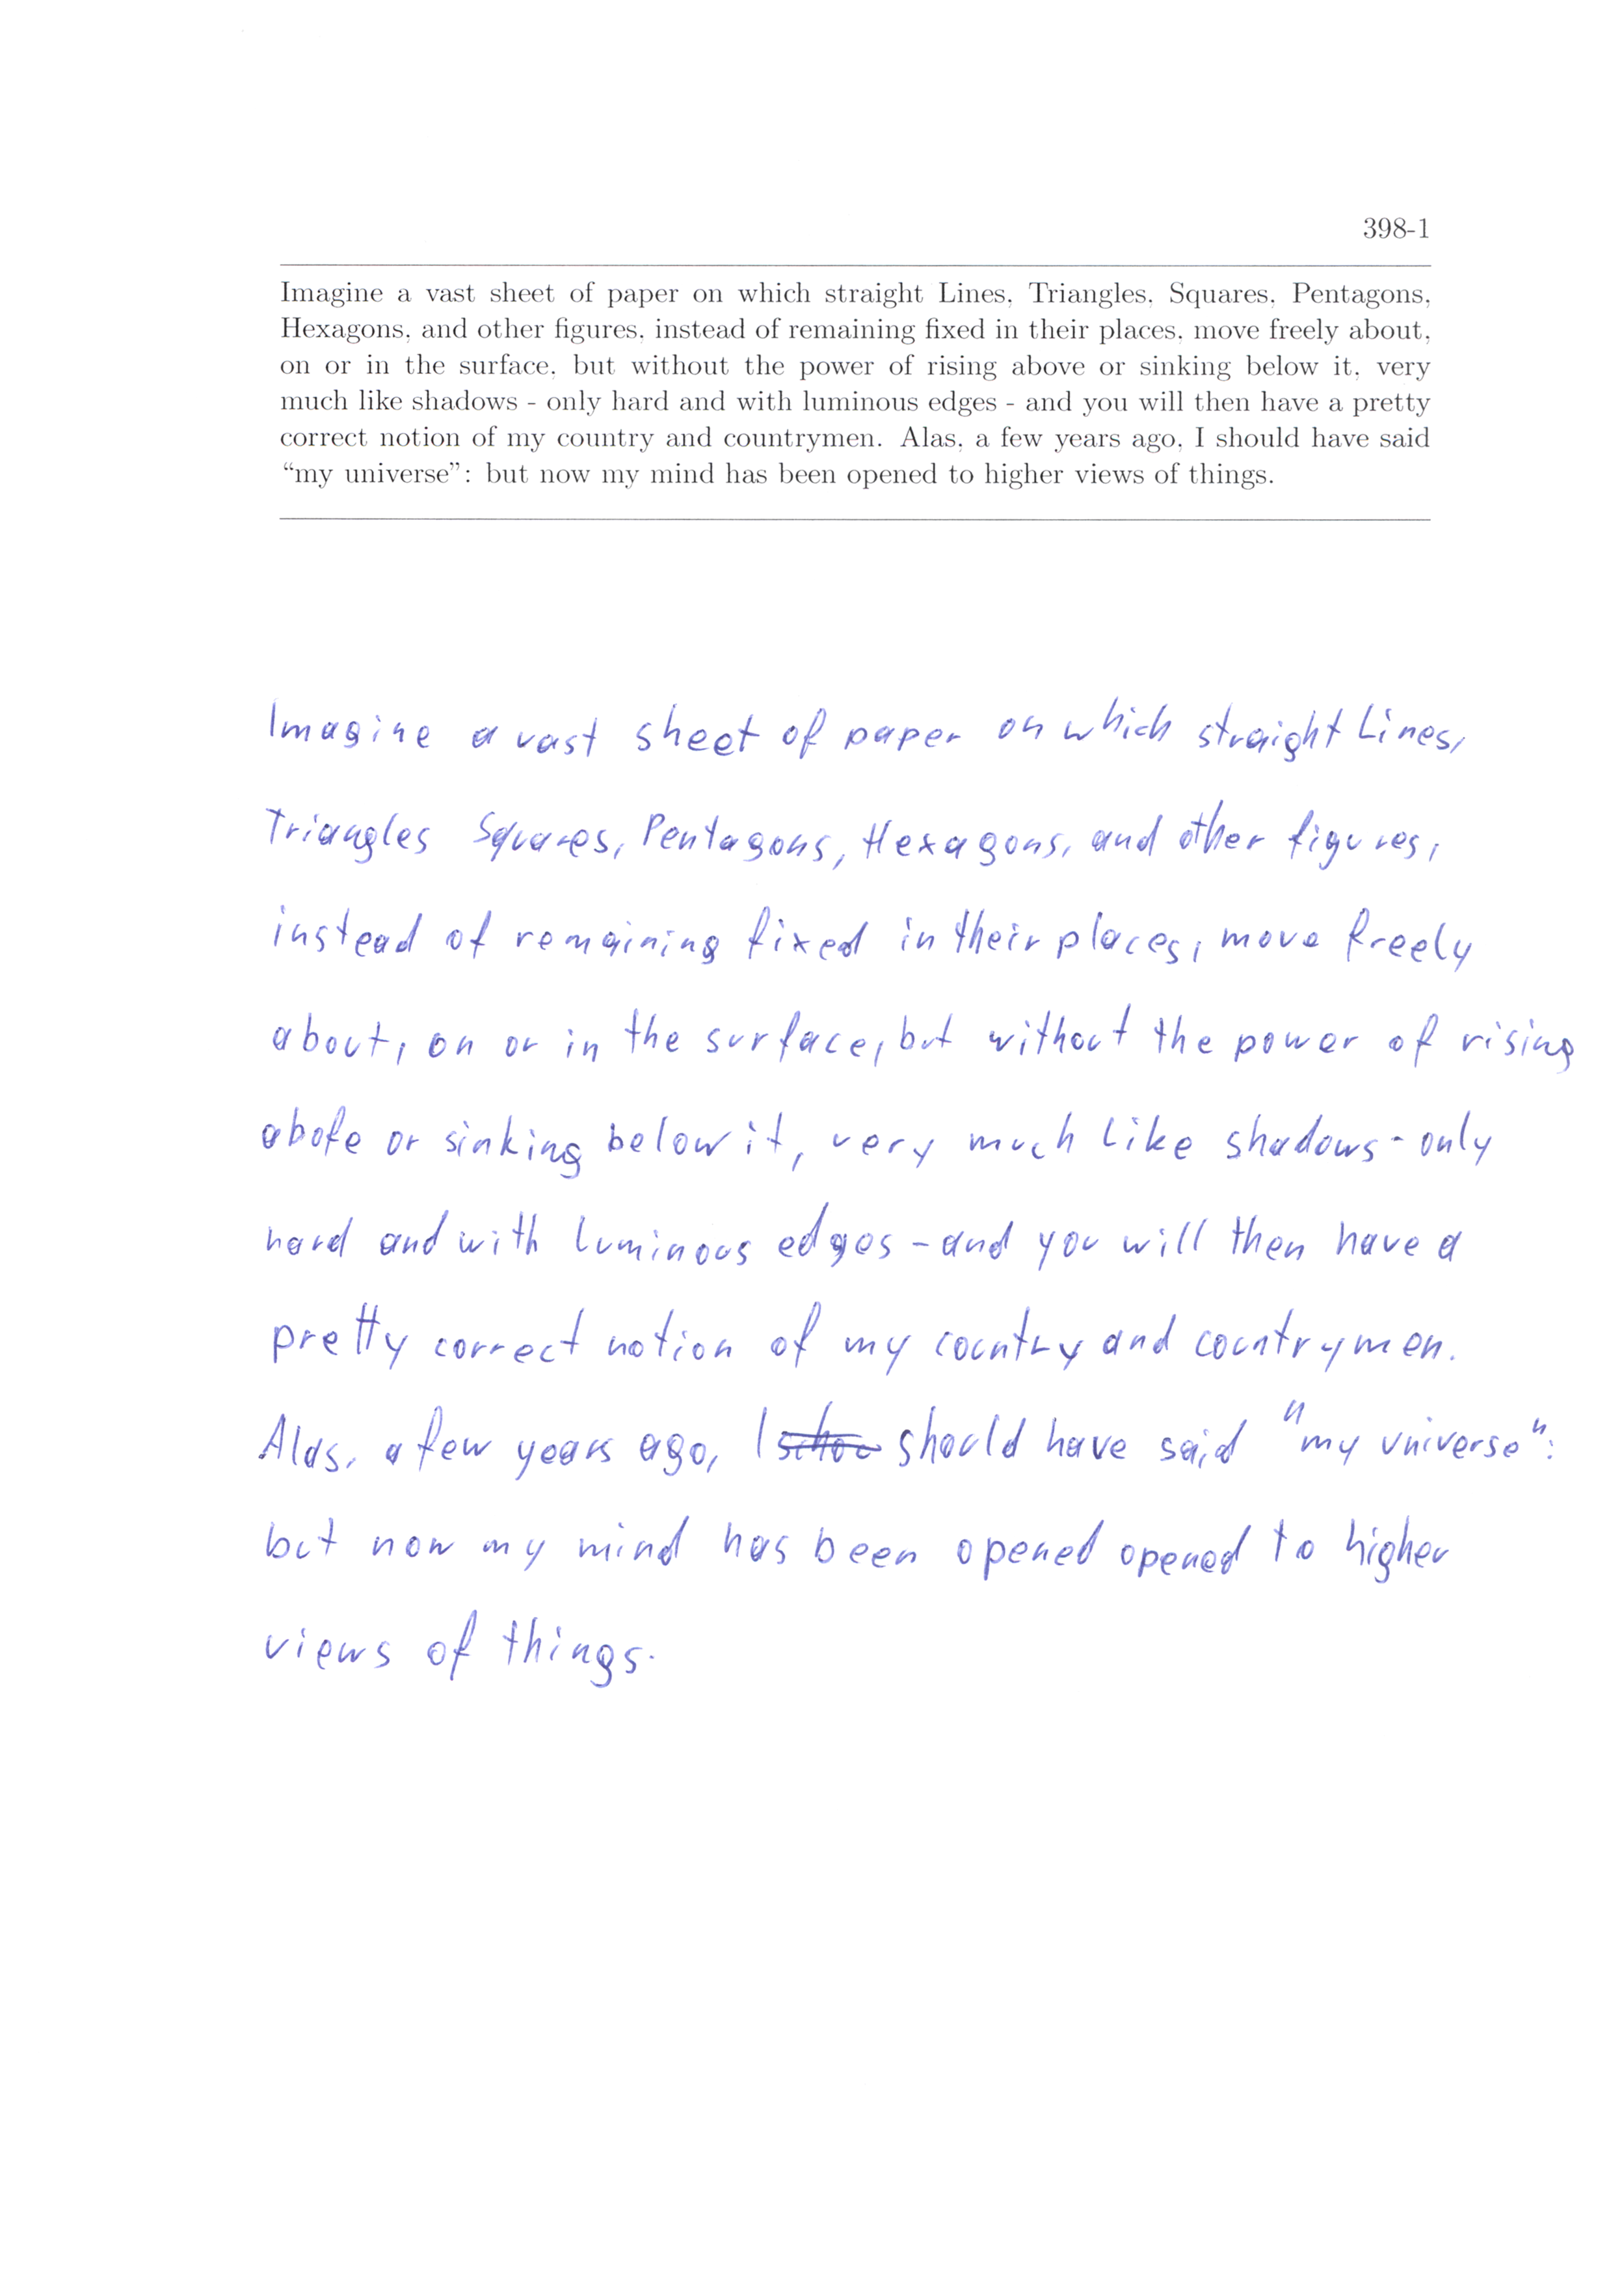 398-1
Imagine a vast sheet of paper on which straight Lines, Triangles, Squares, Pentagons,
Hexagons, and other figures, instead of remaining fixed in their places, move freely about,
on or in the surface, but without the power of rising above or sinking below it, very
much like shadows - only hard and with luminous edges - and you will then have a pretty
correct notion of my country and countrymen. Alas, a few years ago, I should have said
“my universe”: but now my mind has been opened to higher views of things.
Imagine a vast sheet of paper on which straight Lines,
Triangles Squares, Pentagons, Hexagons, and other figures,
instead of remaining fixed in their places, move freely
about, on or in the surface, but without the power of rising
abofe or sinking below it, very much like shadows - only
hard and with luminous edges - and you will then have a
pretty correct notion of my country and countrymen.
Alas, a few years ago, I should have said "my universe":
but now my mind has been opened opened to higher
views of things.